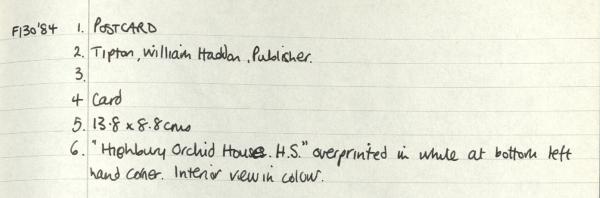 F130'84 1. POSTCARD
2. Tipton, William Haddon, Publisher.
3.
4 Card
5. 13.8 x 8.8 cms
6. "Highbury Orchid House. H.S." overprinted in white at bottom left
hand corner. Interior view in colour.